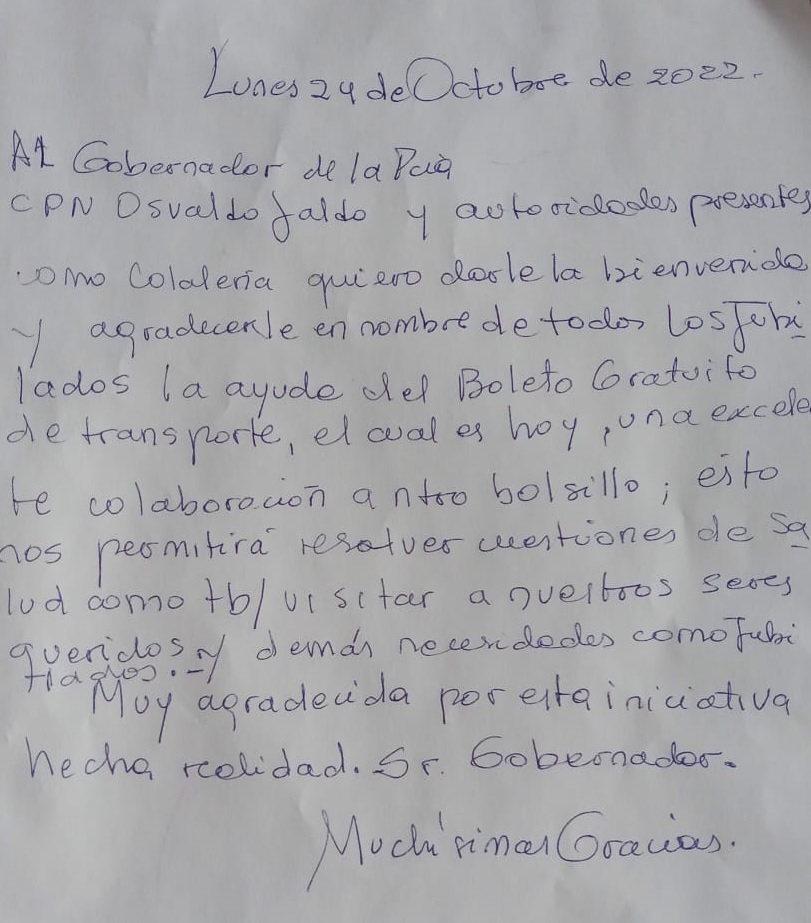 Lunes 24 de Octubre de 2022.-
Al Gobernador de la Pcia
CPN Osvaldo Jaldo y autoridades presentes
como Colaleria quiero darle la bienvenida
y agradecerle en nombre de todos los Jubi
lados la ayuda del Boleto Gratuito
de transporte, el cual es hoy, una excelen
te colaboración a ntro bolsillo; esto
nos permitirá resolver cuestiones de Sa
lud como tb/ visitar a nuestros seres
queridos y demás necesidades como Jubi
lados.-
Muy agradecida por esta iniciativa
hecha realidad. Sr. Gobernador.
Muchísimas Gracias.